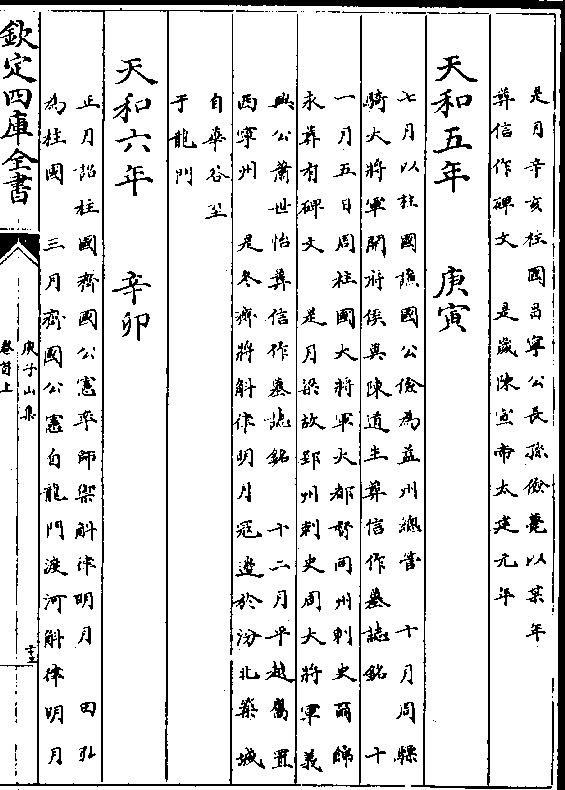 是月辛亥柱國昌寧公長孫儉薨以某年
葬信作碑文　是歲陳宣帝太建元年
天和五年　庚寅
七月以柱國譙國公儉為益州總管　十月周驃
騎大將軍開府侯莫陳道生葬信作墓誌銘　十
一月五日周柱國大將軍大都督同州刺史爾綿
永葬有碑文　是月梁故郢州刺史周大將軍義
興公蕭世怡葬信作墓誌銘　十二月平越嶲置
西寧州　是冬齊將斛律明月寇邊於汾北築城
自華谷至
于龍門
天和六年　辛卯
正月詔柱國齊國公憲率師禦斛律明月　田弘
為柱國　三月齊國公憲自龍門渡河斛律明月
欽定四庫全書
庾子山集
卷首上